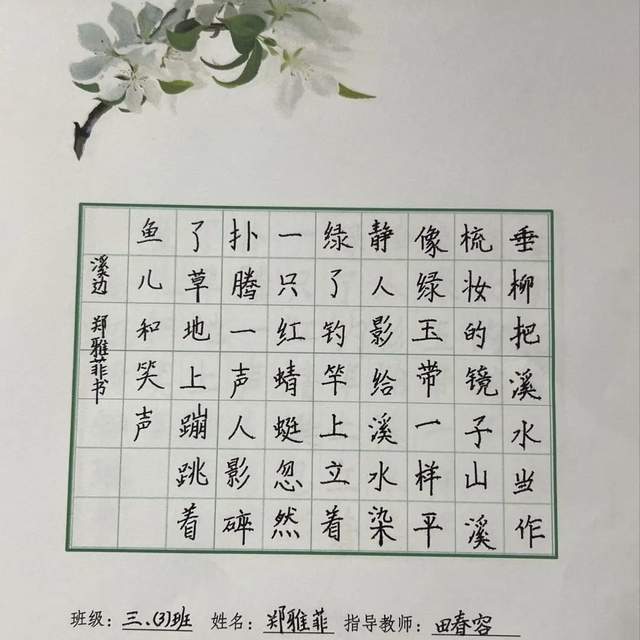 垂柳把溪水当作
梳妆的镜子山溪
像绿玉带一样平
静人影给溪水染
绿了钓竿上立着
一只红蜻蜓忽然
扑腾一声人影碎
了草地上蹦跳着
鱼儿和笑声
溪边 郑雅菲书
班级：三.(3)班 姓名：郑雅菲 指导教师：田春容